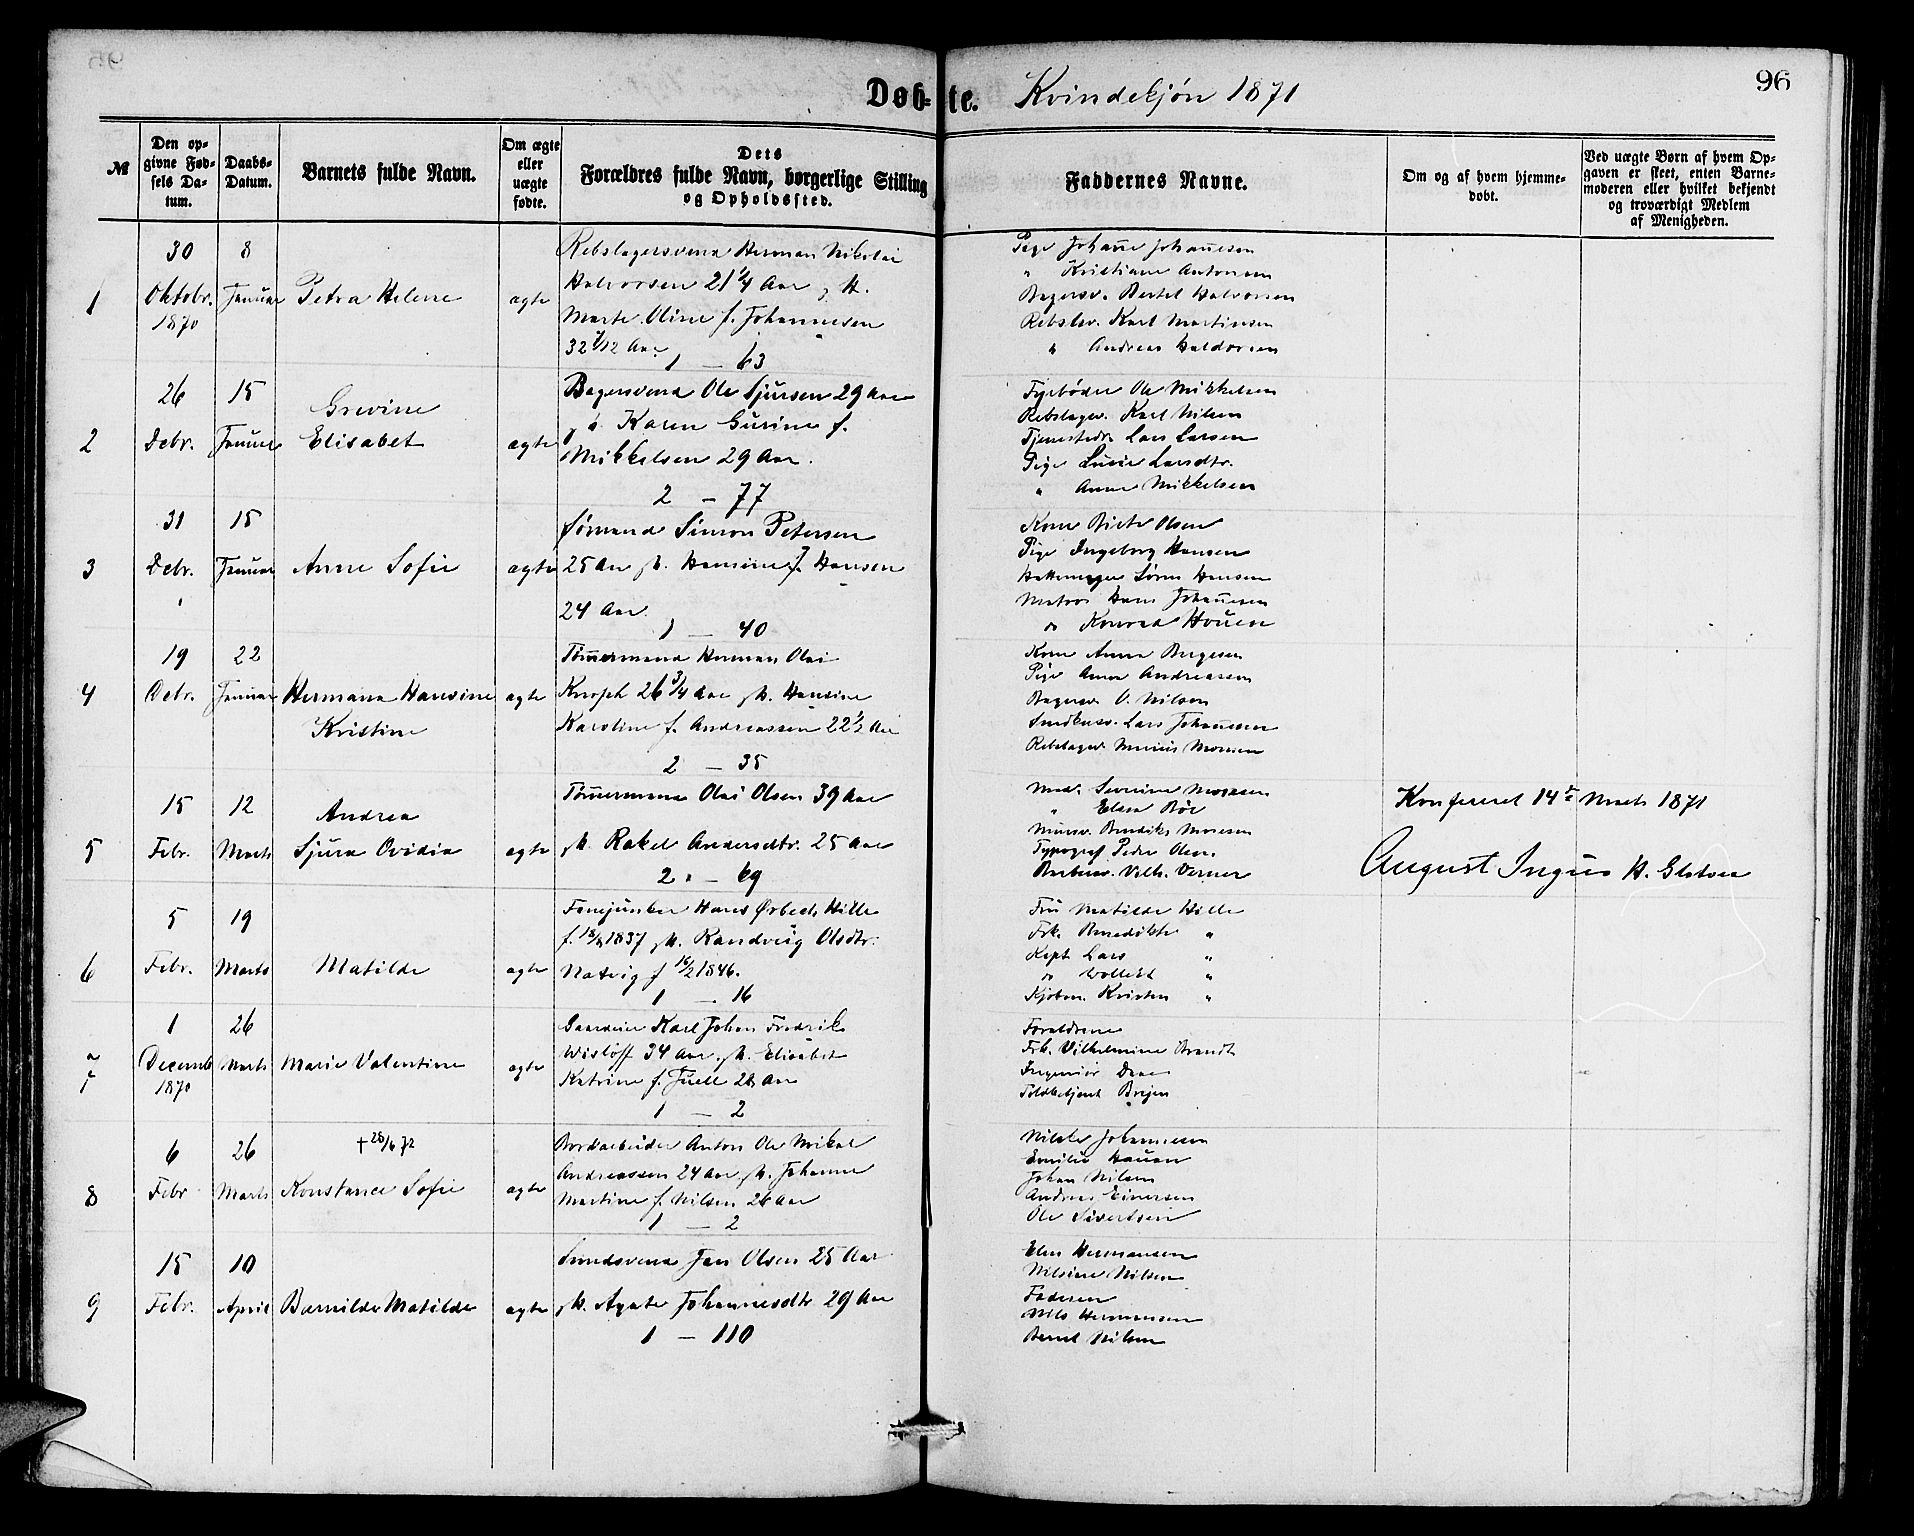 96
Døb-te. Kvindekjøn 1871
№
Den opgivne Fødsels Datum.
Daabs-Datum.
Barnets fulde Navn.
Om ægte eller uægte fødte.
Dets Forældres fulde Navn, borgerlige Stilling og Opholdssted.
Faddernes Navne.
Om og af hvem hjemmedøbt.
Ved uægte Børn af hvem Opgaven er skeet, enten Barnemoderen eller hvilket bekjendt og troværdigt Medlem af Menigheden.
1
30 Oktobr. 1870
8 Januar
Petra Helene
ægte
Rebslagersvend Herman Nikolai
Halvorsen 21 1/4 Aar, H.
Marte Oline f. Johannesen
32 7/12 Aar
1 — 63
Pige Johanne Johannesen
" Kristiane Antonsen
Bagersv. Bertel Halvorsen
Rebslsv. Karl Martinsen
" Andreas Haldorsen
2
26 Debr.
15 Januar
Grevine
Elisabet
ægte
Bagersvend Ole Sjursen 29 Aar
Karen Gurine f.
Mikkelsen 29 Aar.
2 — 77
Fyrbøder Ole Mikkelsen
Rebslager Karl Nilsen
Tjenestedr. Lars Larsen
Pige Lussie Larsdtr.
" Anne Mikkelsen
3
31 Debr.
15 Januar
Anne Sofie
ægte
Sømand Simon Petersen
25 Aar H. Hansine f. Hansen
24 Aar.
1 — 40
Kone Birte Olsen
Pige Ingeborg Hansen
Hattemager Søren Hansen
Matros Hans Johannesen
" Konrad Houen
4
19 Debr.
22 Januar
Hermana Hansine
Kristine
ægte
Tømmermand Herman Olai
Knoph 26 3/4 Aar H. Hansine
Karoline f. Andreassen 22 1/2 Aar
2 — 35
Kone Anna Bergesen
Pige Anna Andreassen
Bagersv. O. Nilsen
Smedsv. Lars Johannesen
Rebslager Monsen
5
15 Febr.
12 Marts
Andrea
Sjura Ovidia
ægte
Tømmermand Olai Olsen 39 Aar
H. Rakel Andersdtr. 25 Aar
2 — 69
Mad. Severine
" Elen Bøe
Mursv. Bendiks
Typograf Peder Olsen
Barbersv. Vilh. Verner
Konfereret 14de Marts 1871
August Ingus H.
6
5 Febr.
19 Marts
Matilde
ægte
Fanejunker Hans Ørbech Hille
1837 H. Randveig Olsdtr.
Natvig f 16/2 1846.
1 — 16
Fru Matilde Hille
Frk. Benedikte "
Kapt Lars "
" "
Kjøbm. Kristen "
7
1 Decemb 1870
26 Marts
Marie Valentine
ægte
Gaardeier Karl Johan Fredrik
Wisløff 34 Aar H. Elisabet
Katrine f. Juell 28 Aar
1 — 2
Forældrene
Frk. Vilhelmine Brandt
Ingeniør
Toldbetjent
8
6 Febr
26 Marts
+ 28/6 72
Konstance Sofie
ægte
Bordarbeider Anton Ole Mikal
Andreassen 24 Aar H. Johanne
Martine f. Nilsen 26 Aar
1 — 2
Johannesen
Emilie Hauan
Johan Nilsen
Andreas Einersen
Ole Sivertsen
9
15 Febr.
10 April
Barnilde Matilde
ægte
Smedsvend Jan Olsen 25 Aar
H. Agate Johannesdtr 29 Aar
1 — 110
Elen Hermansen
Nilsine Nilsen
Faderen
Nils Hermansen
Bernt Nilsen